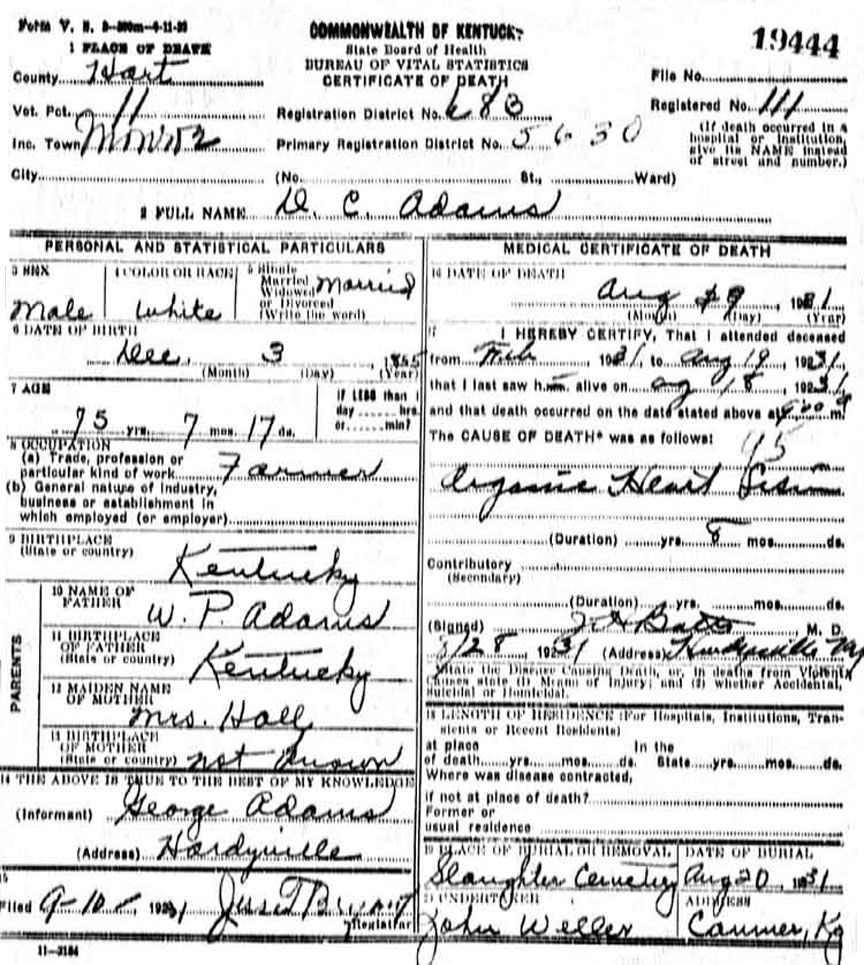 Form V. S.
COMMONWEALTH OF KENTUCKY
19444
1 PLACE OF DEATH
State Board of Health
BUREAU OF VITAL STATISTICS
CERTIFICATE OF DEATH
County Hart
File No.
Vot. Pct. 11
Registration District No. 683
Registered No. 111
Inc. Town
Primary Registration District No. 5630
(If death occurred in a hospital or institution, give its NAME instead of street and number.)
City (No. St., Ward)
2 FULL NAME D. C. Adams
PERSONAL AND STATISTICAL PARTICULARS
3 SEX
Male
4 COLOR OR RACE
White
5 Single
Married
Widowed
or Divorced
(Write the word)
Married
6 DATE OF BIRTH
Dec. 3 1855
(Month) (Day) (Year)
7 AGE
75 yrs. 7 mos. 17 ds.
If LESS than 1
day hrs.
or min?
8 OCCUPATION
(a) Trade, profession or
particular kind of work Farmer
(b) General nature of industry,
business or establishment in
which employed (or employer)
9 BIRTHPLACE
(State or country)
Kentucky
PARENTS
10 NAME OF
FATHER
W. P. Adams
11 BIRTHPLACE
OF FATHER
(State or country)
Kentucky
12 MAIDEN NAME
OF MOTHER
Mrs. Hall
13 BIRTHPLACE
OF MOTHER
(State or country) not known
14 THE ABOVE IS TRUE TO THE BEST OF MY KNOWLEDGE
(Informant) George Adams
(Address) Hardyville
15
Filed 9-10
Registrar
11-3184
MEDICAL CERTIFICATE OF DEATH
16 DATE OF DEATH
Aug
(Month) (Day) (Year)
17 I HEREBY CERTIFY, That I attended deceased
from 1931, to Aug 19, 1931,
that I last saw h alive on 18, 1931,
and that death occurred on the date stated above at m.
The CAUSE OF DEATH* was as follows:
95
Organic Heart
(Duration) yrs. 8 mos. ds.
Contributory
(Secondary)
(Duration) yrs. mos. ds.
(Signed) M. D.
28, 1931 (Address) Hardyville Ky
*State the Disease Causing Death, or, in deaths from Violent
Causes state (1) Means of Injury; and (2) whether Accidental,
Suicidal or Homicidal.
18 LENGTH OF RESIDENCE (For Hospitals, Institutions, Tran-
sients or Recent Residents)
at place In the
of death yrs. mos. ds. State yrs. mos. ds.
Where was disease contracted,
if not at place of death?
Former or
usual residence
19 PLACE OF BURIAL OR REMOVAL
Slaughter Cemetery
DATE OF BURIAL
Aug 20 1931
20 UNDERTAKER
John Weller
ADDRESS
Canmer, Ky